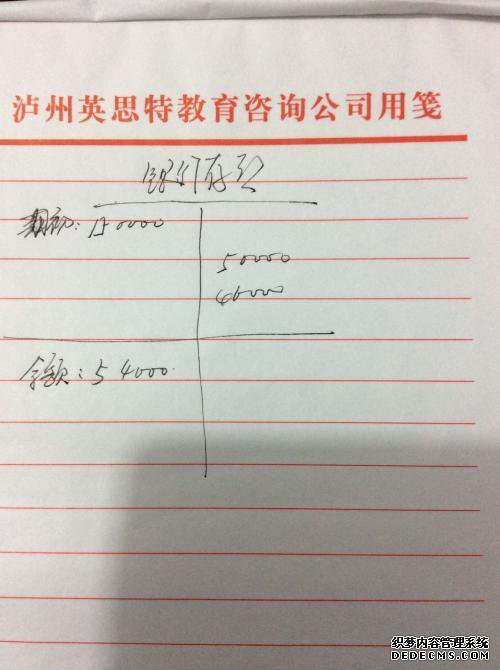 泸州英思特教育咨询公司用笺
银行存款
期初: 150000
50000
46000
余额: 54000.
织梦内容管理系统
DEDECMS.COM